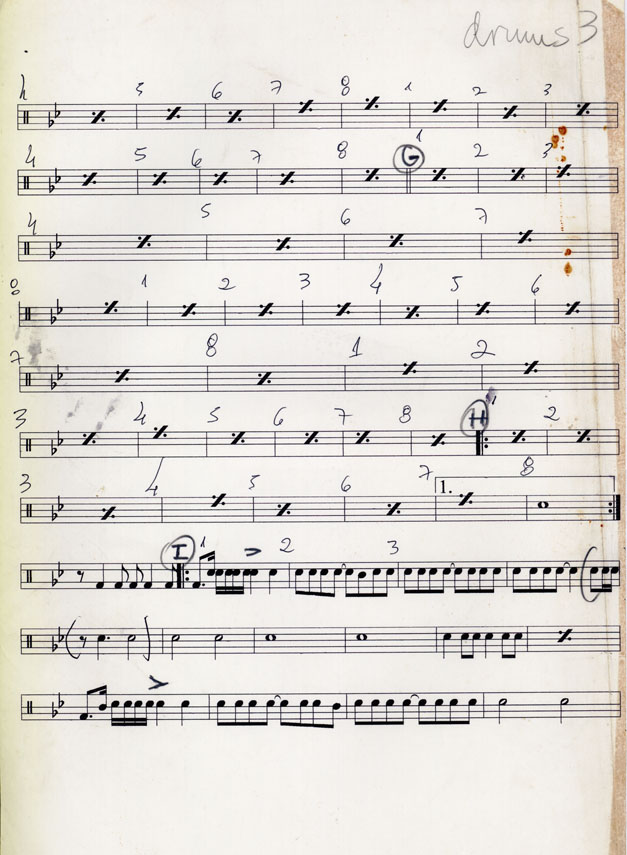 drums 3
4 5 6 7 8 1 2 3
4 5 6 7 8 G 1 2 3
4 5 6 7
8 1 2 3 4 5 6
7 8 1 2
3 4 5 6 7 8 H 1 2
3 4 5 6 7 1. 8
I 1 2 3